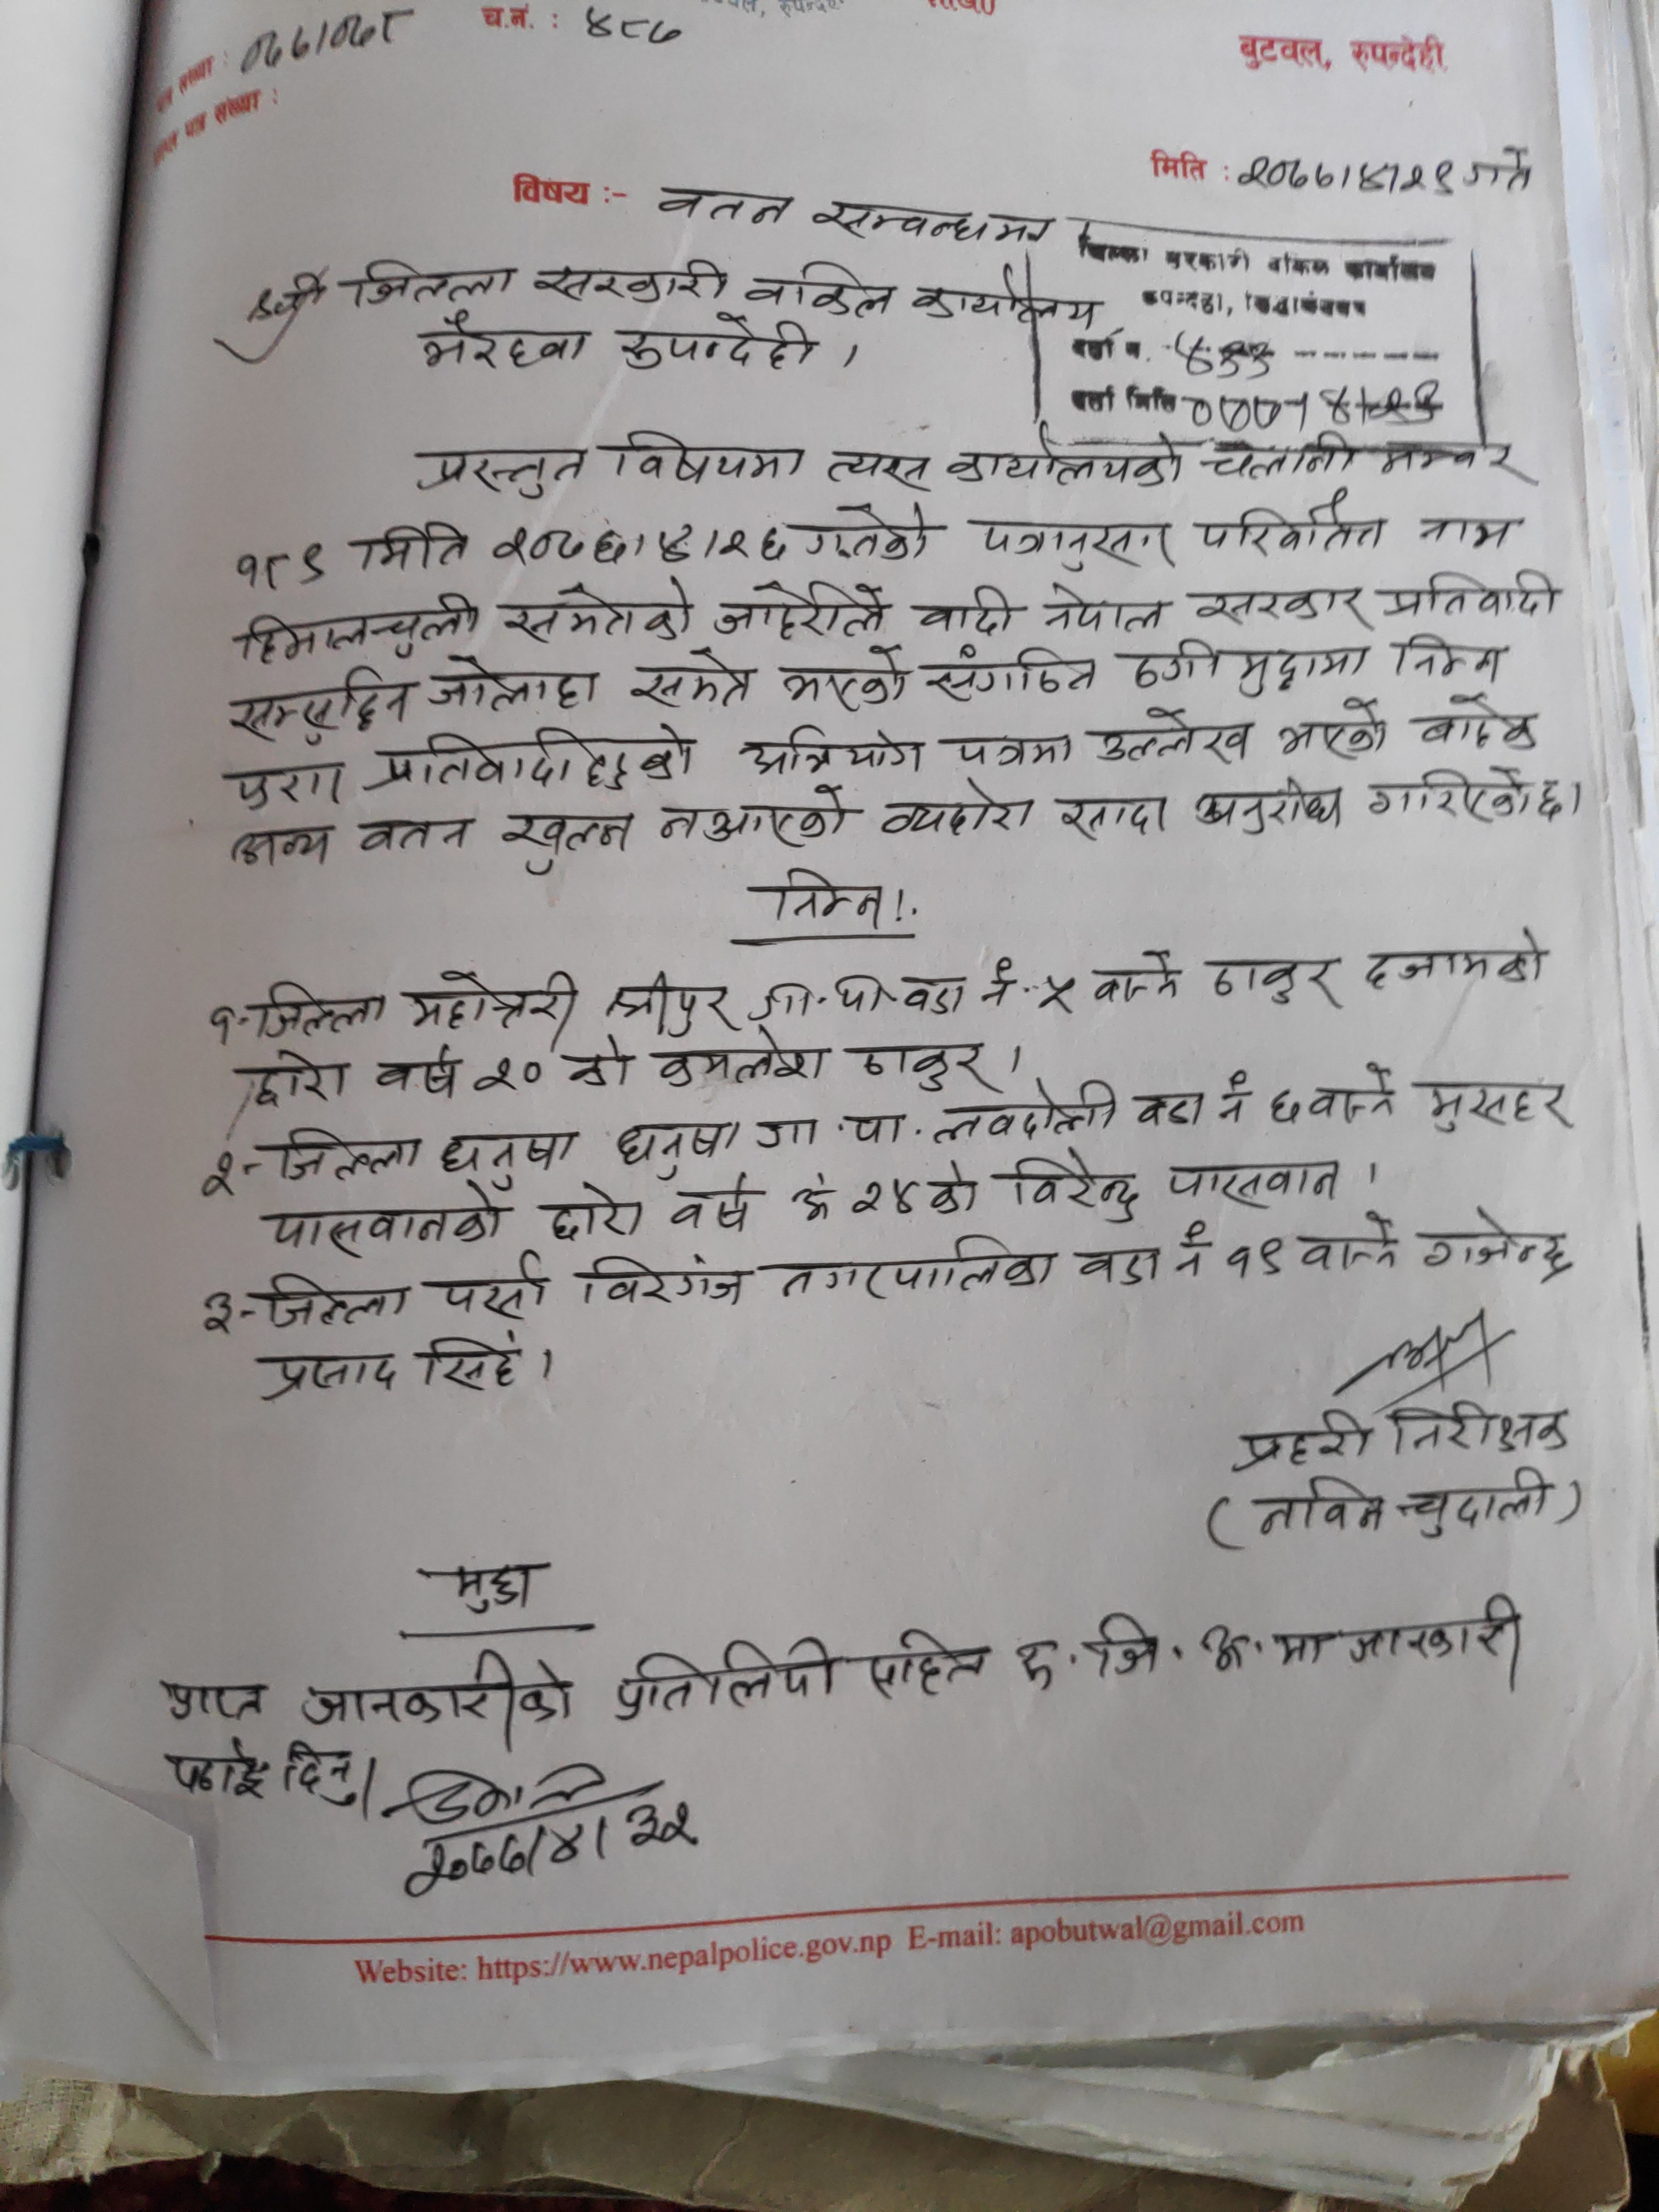 बुटवल, रुपन्देही
च.नं. : ४८७
पत्र संख्या : ०७७/०७८
मिति : २०७७/४/२९ गते
विषय :- वतन सम्वन्धमा
श्री जिल्ला सरकारी वकिल कार्यालय
भैरहवा रुपन्देही ।
जिल्ला सरकारी वकिल कार्यालय
रुपन्देही,
दर्ता नं.
दर्ता मिति
प्रस्तुत विषयमा त्यस कार्यालयको चलानी नम्वर
१८९ मिति २०७७/४/२६ गतेको पत्रानुसार परिवर्तित नाम
हिमालचुली समेतको जाहेरीले वादी नेपाल सरकार प्रतिवादी
जोलाहा समेत भएको संगठित ठगी मुद्दामा निम्न
प्रतिवादीहरुको अभियोग पत्रमा उल्लेख भएको वाहेक
अन्य वतन खुल्न नआएको व्यहोरा सादर अनुरोध गरिएकोछ।
निम्न।.
१- जिल्ला महोत्तरी गा.पा वडा नं. ५ वस्ने ठाकुर हजामको
छोरा वर्ष २० को कमलेश ठाकुर ।
२- जिल्ला धनुषा धनुषा गा.पा. वडा नं ६ वस्ने मुसहर
पासवानको छोरा वर्ष २४ को विरेन्द्र पासवान ।
३- जिल्ला पर्सा विरगंज नगरपालिका वडा नं १९ वस्ने गजेन्द्र
प्रसाद सिहं ।
प्रहरी निरीक्षक
(नविन चुदाली)
मुद्दा
प्राप्त जानकारीको प्रतिलिपी सहित रु.जि.अ.मा जानकारी
पठाई दिनु।
२०७७/४/३२
Website: https://www.nepalpolice.gov.np E-mail: apobutwal@gmail.com